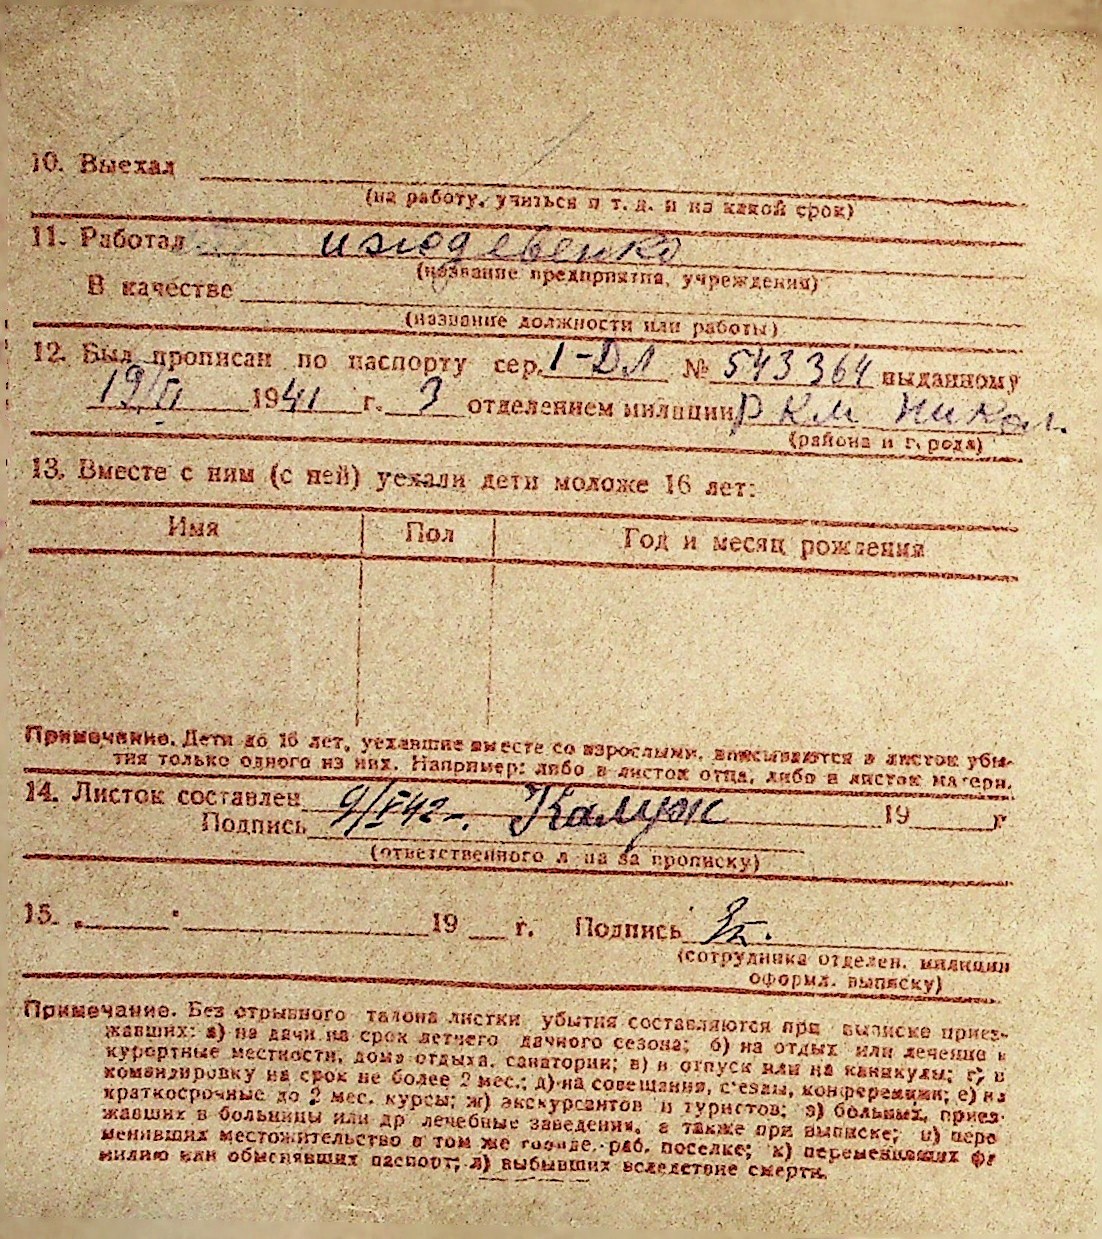 10. Выехал
(на работу, учиться и т. д. и на какой срок)
11. Работал иждевенко
(название предприятия, учреждения)
В качестве
(название должности или работы)
12. Был прописан по паспорту сер. 1-ДЛ № 543364 выданному
19/VI 1941 г. 3 отделением милиции РКМ Никол.
(района и города)
13. Вместе с ним (с ней) уехали дети моложе 16 лет:
Имя Пол Год и месяц рождения
Примечание. Дети до 16 лет, уехавшие вместе со взрослыми, вписываются в листок убы-
тия только одного из них. Например: либо в листок отца, либо в листок матери.
14. Листок составлен 9/ 42 г. 19 г
Подпись Калуж
(ответственного л ца за прописку)
15. 19 г. Подпись
(сотрудника отделен. милиции
оформл. выписку)
Примечание. Без отрывного талона листки убытия составляются при выписке приез-
жавших: а) на дачи на срок летнего дачного сезона; б) на отдых или лечение в
курортные местности, дома отдыха, санатории; в) в отпуск или на каникулы; г) в
командировку на срок не более 2 мес.; д) на совещания, с'езды, конференции; е) на
краткосрочные до 2 мес. курсы; ж) экскурсантов и туристов; з) больных, приез-
жавших в больницы или др лечебные заведения, а также при выписке; и) пере
менивших местожительство в том же городе, раб. поселке; к) переменивших фа
милию или обменявших паспорт; л) выбывших вследствие смерти.